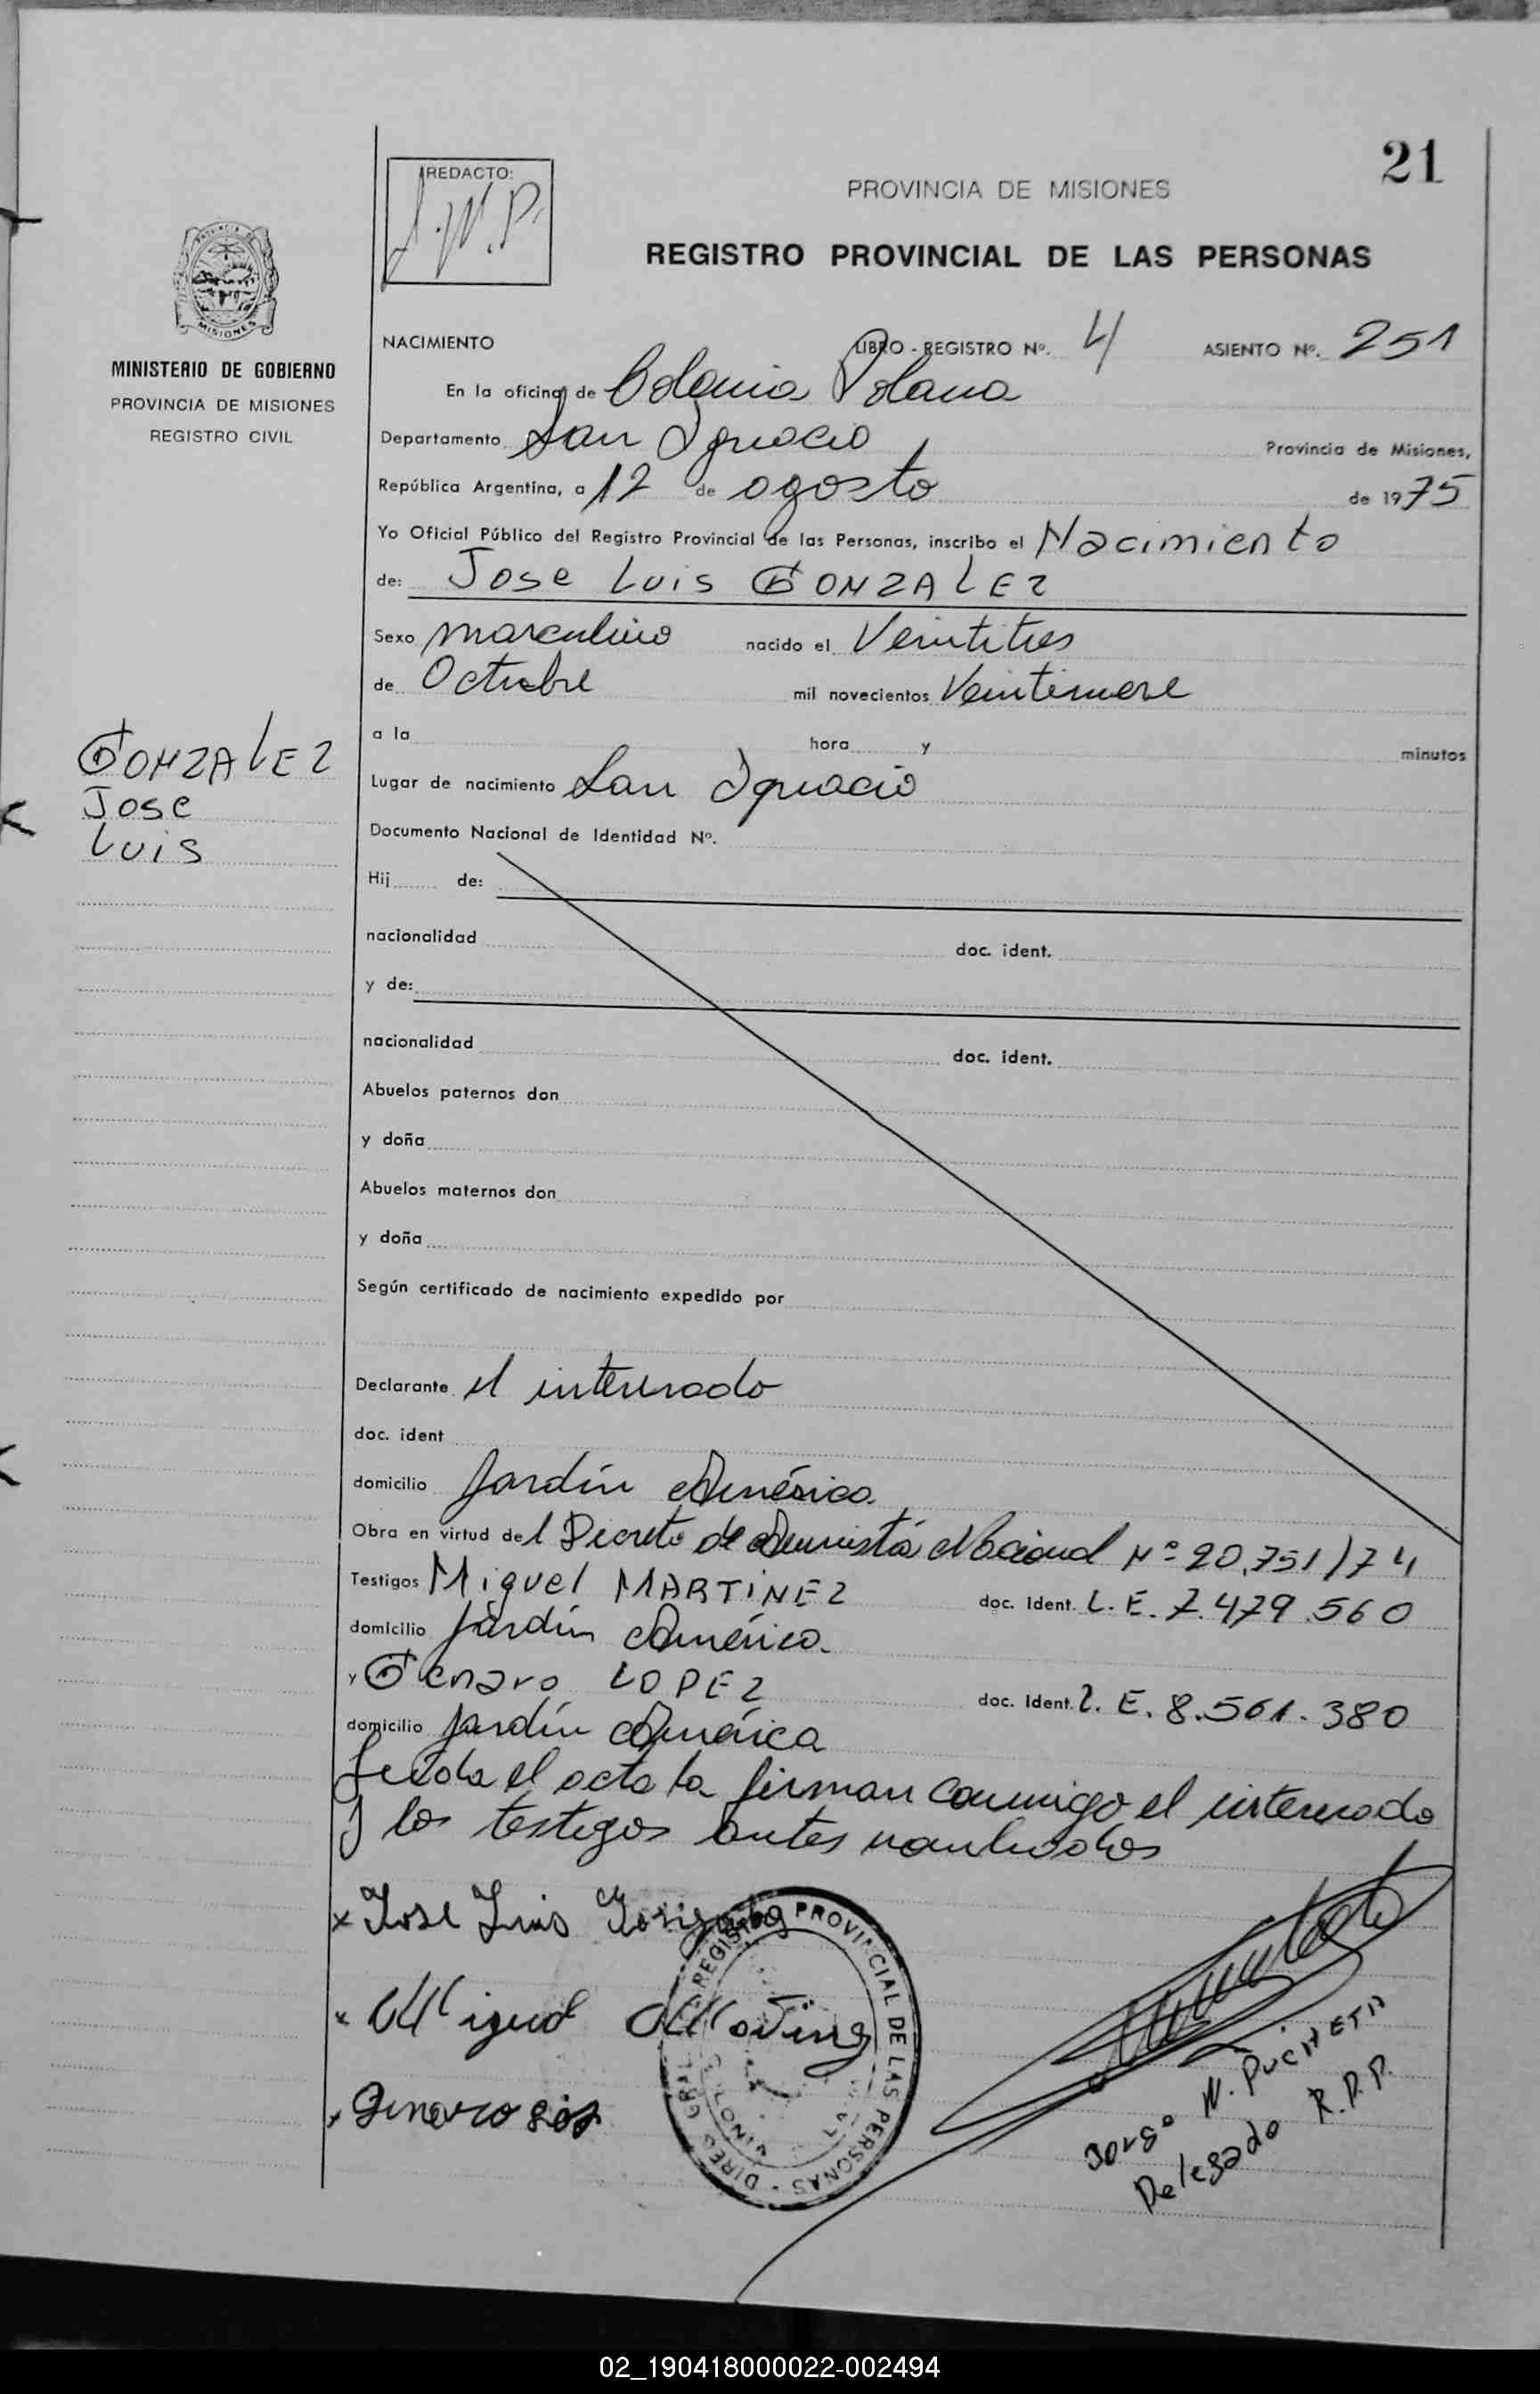 21
REDACTO:
J.W.P.
PROVINCIA DE MISIONES
REGISTRO PROVINCIAL DE LAS PERSONAS
MISIONES
MINISTERIO DE GOBIERNO
PROVINCIA DE MISIONES
REGISTRO CIVIL
NACIMIENTO LIBRO - REGISTRO Nº. 4 ASIENTO Nº. 251
En la oficina de Colonia Polana
Departamento San Ignacio Provincia de Misiones,
República Argentina, a 12 de agosto de 1975
Yo Oficial Público del Registro Provincial de las Personas, inscribo el Nacimiento
de: Jose Luis GONZALEZ
Sexo masculino nacido el Veintitres
de Octubre mil novecientos Veintinueve
a la hora y minutos
GONZALEZ
Jose
Luis
Lugar de nacimiento San Ignacio
Documento Nacional de Identidad Nº.
Hij de:
nacionalidad doc. ident.
y de:
nacionalidad doc. ident.
Abuelos paternos don
y doña
Abuelos maternos don
y doña
Según certificado de nacimiento expedido por
Declarante el interesado
doc. ident
domicilio Jardín América.
Obra en virtud del Decreto de Amnistía Nacional Nº 20.751/74
Testigos Miguel MARTINEZ doc. Ident. L.E. 7.479.560
domicilio Jardín América.
y Genaro LOPEZ doc. Ident. L.E. 8.561.380
domicilio Jardín América
Leída el acta la firman conmigo el interesado
y los testigos antes nombrados
x Jose Luis Gonzalez
x Miguel
x Genaro
DIREC. GRAL. REGISTRO PROVINCIAL DE LAS PERSONAS
COLONIA
Jorge W. PUCHETA
Delegado R.P.P.
02_190418000022-002494